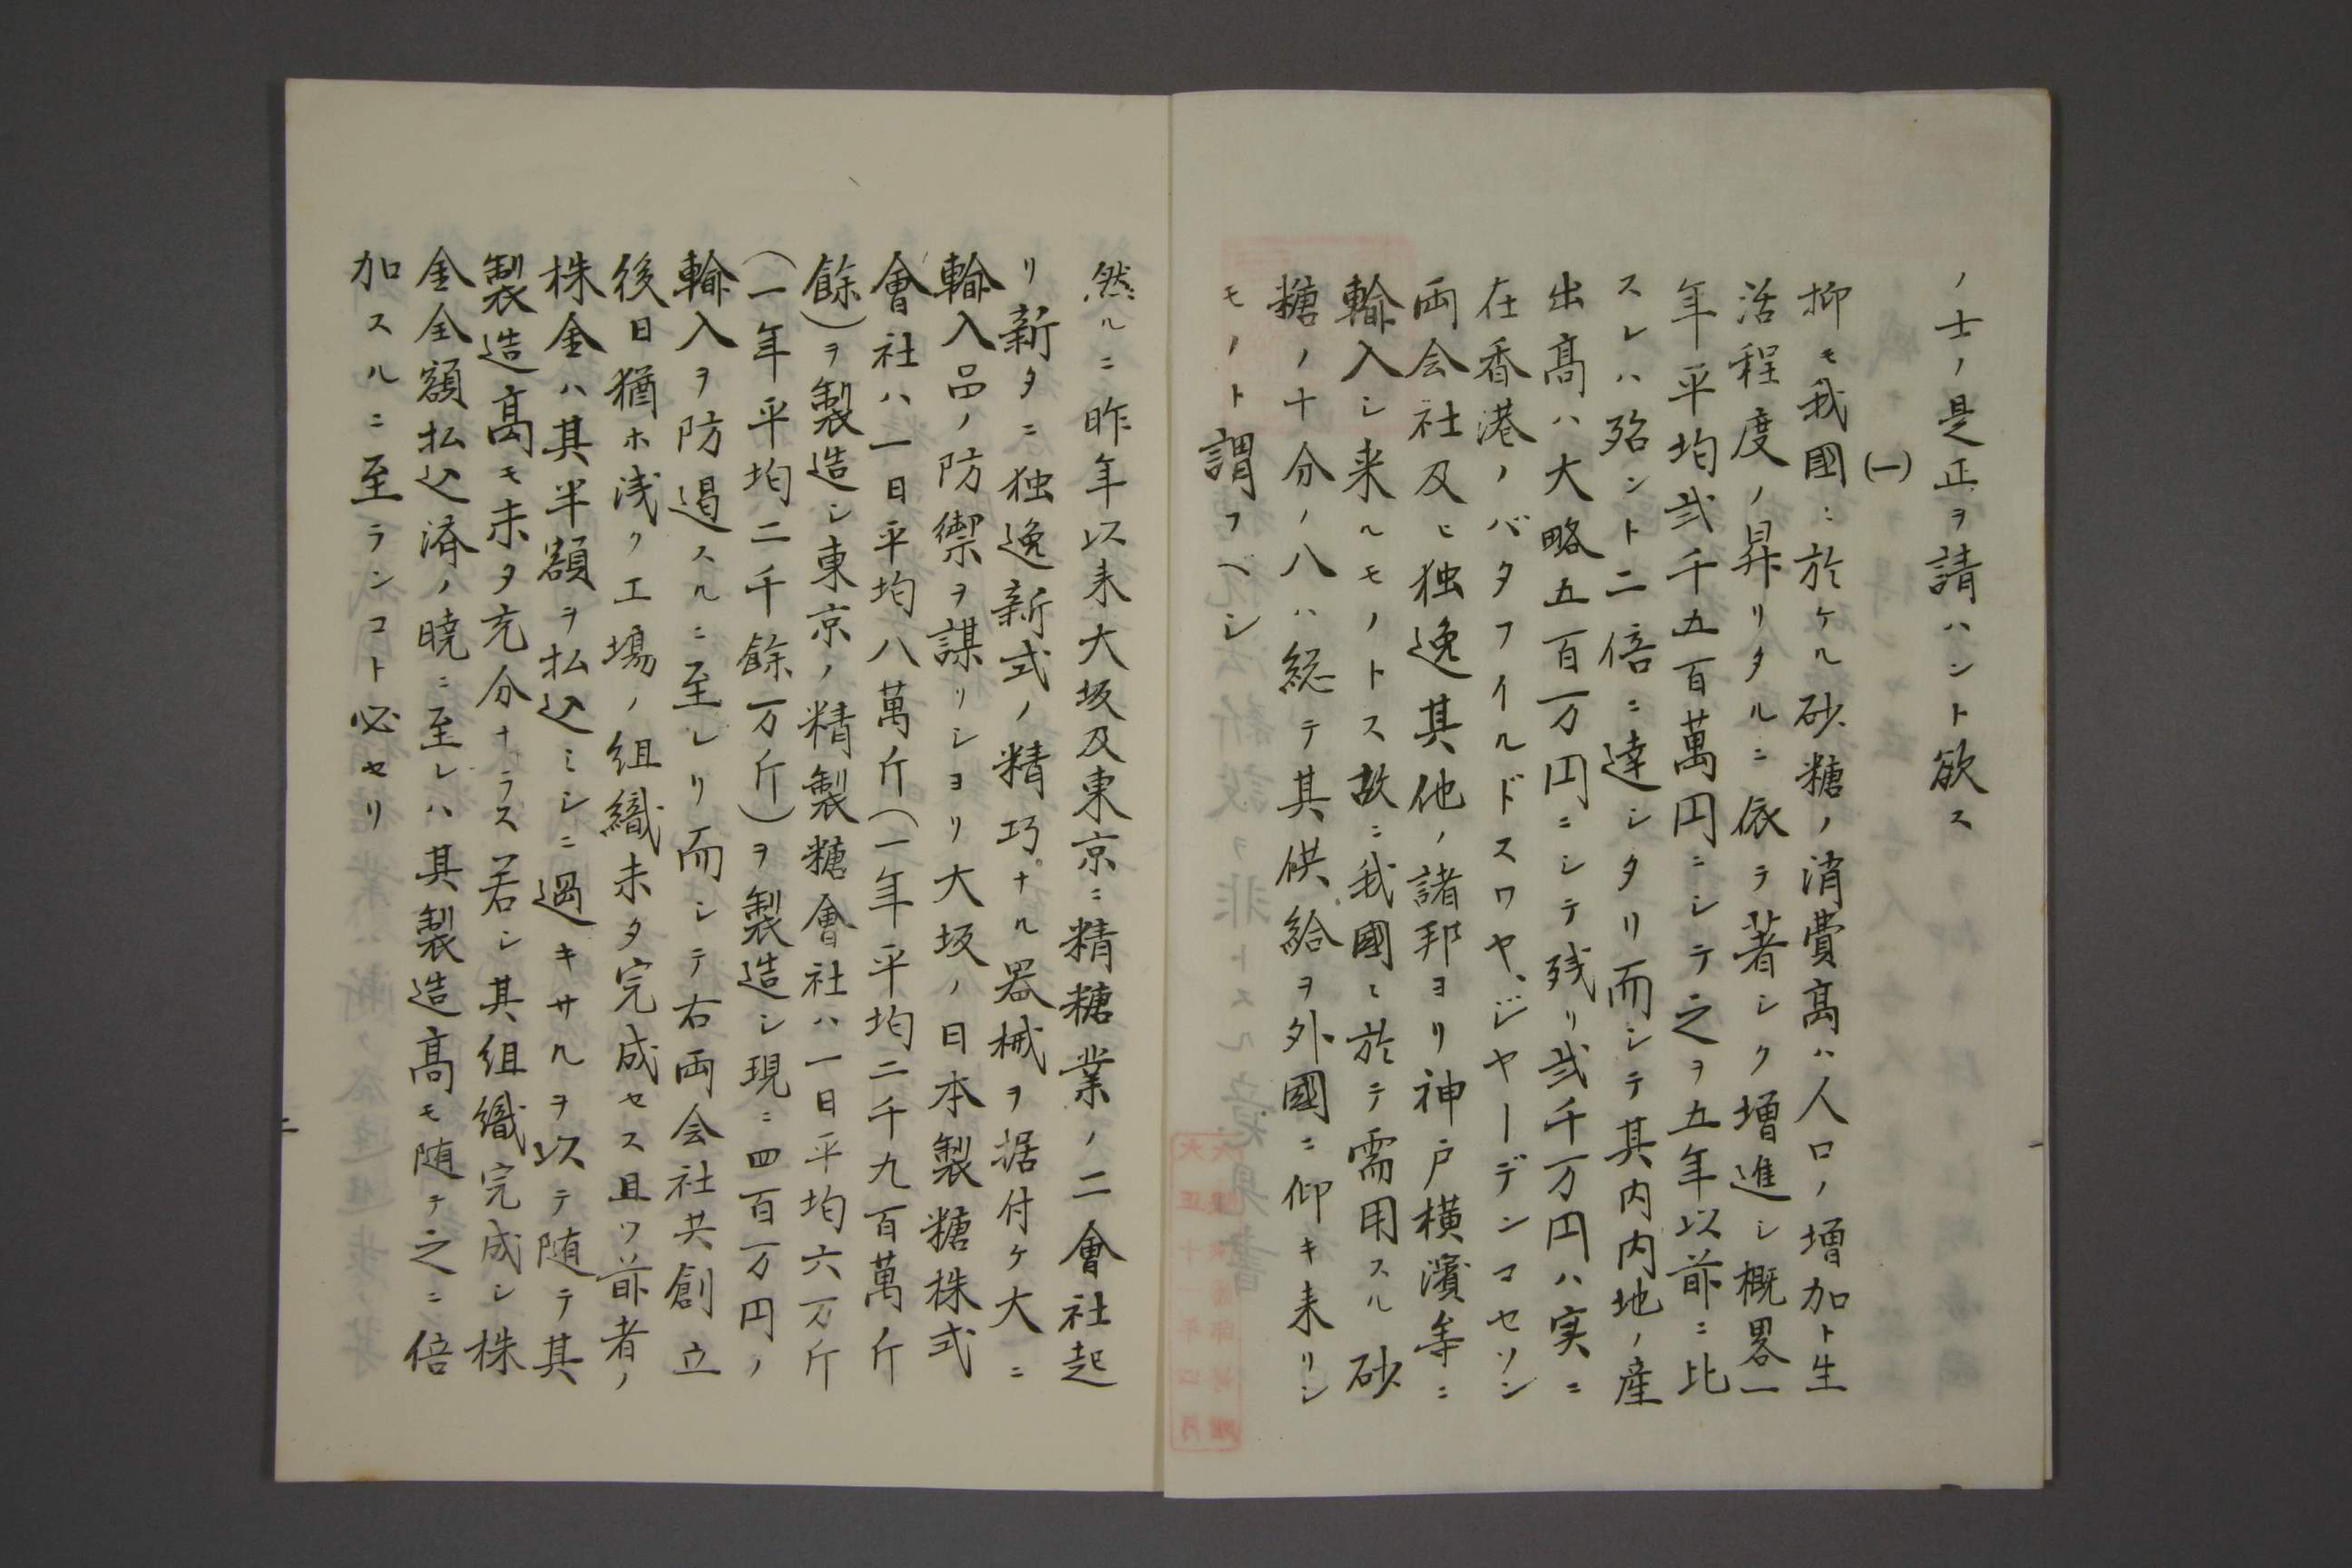 ノ士ノ是正ヲ請ハント欲ス
(一)
抑モ我國ニ於ケル砂糖ノ消費高ハ人口ノ増加ト生
活程度ノ昇リタルニ依テ著シク増進シ概畧一
年平均弐千五百萬円ニシテ之ヲ五年以前ニ比
スレハ殆ント二倍ニ達シタリ而シテ其内内地ノ産
出高ハ大略五百万円ニシテ残リ弐千万円ハ実ニ
在香港ノバタフイルドスワヤ、ジヤーデンマセソン
両会社及ヒ独逸其他ノ諸邦ヨリ神戸横濱等ニ
輸入シ来ルモノトス故ニ我國ニ於テ需用スル砂
糖ノ十分ノ八ハ総テ其供給ヲ外國ニ仰キ来リシ
モノト謂フヘシ
然ルニ昨年以来大坂及東京ニ精糖業ノ二會社起
リ新タニ独逸新式ノ精巧ナル器械ヲ据付ケ大ニ
輸入品ノ防禦ヲ謀リシヨリ大坂ノ日本製糖株式
會社ハ一日平均八萬斤(一年平均二千九百萬斤
餘)ヲ製造シ東京ノ精製糖會社ハ一日平均六万斤
(一年平均二千餘万斤)ヲ製造シ現ニ四百万円ノ
輸入ヲ防遏スルニ至レリ而シテ右両会社共創立
後日猶ホ浅ク工場ノ組織未タ完成セス且ツ前者ノ
株金ハ其半額ヲ払込ミシニ過キサルヲ以テ随テ其
製造高モ未タ充分ナラス若シ其組織完成シ株
金全額払込済ノ暁ニ至レハ其製造高モ随テ之ニ倍
加スルニ至ランコト必セリ
二